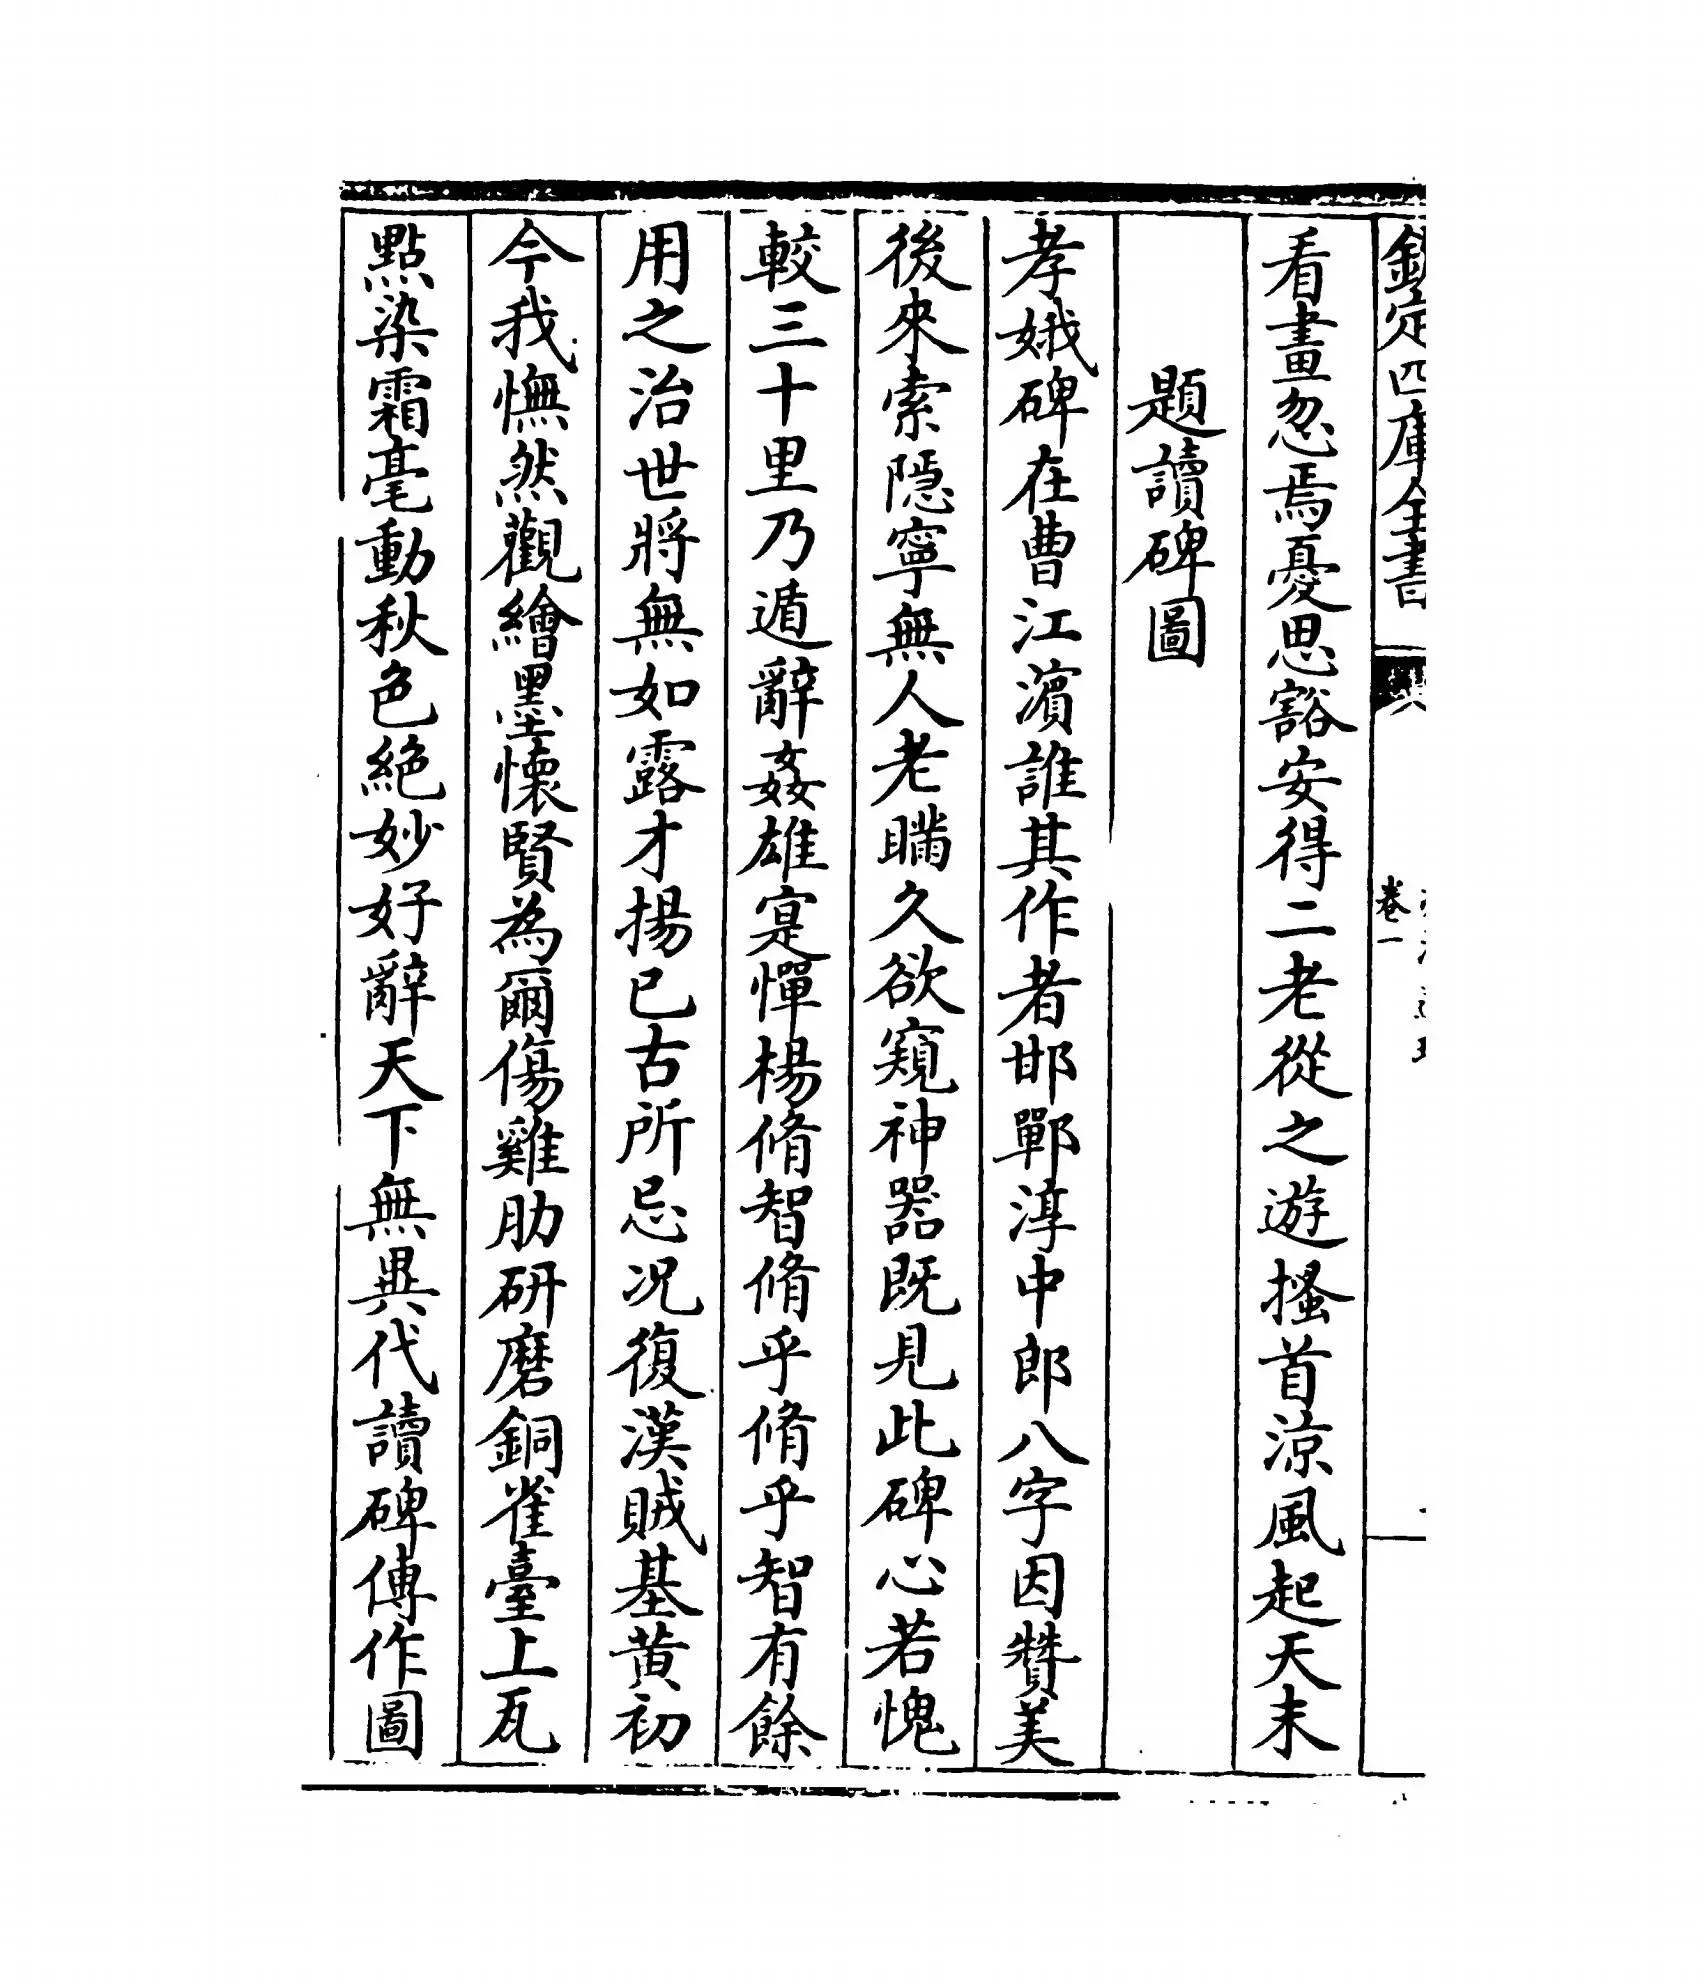 欽定四庫全書
卷一
看畫忽焉憂思豁安得二老從之遊搔首涼風起天末
題讀碑圖
孝娥碑在曹江濵誰其作者邯鄲淳中郎八字因贊美
後來索隠寧無人老瞞久欲窺神器既見此碑心若愧
較三十里乃遁辭姦雄寔憚楊脩智脩乎脩乎智有餘
用之治世將無如露才揚已古所忌况復漢賊基黄初
今我憮然觀繪墨懷賢為爾傷雞肋研磨銅雀臺上瓦
點染霜毫動秋色絶妙好辭天下無異代讀碑傳作圖